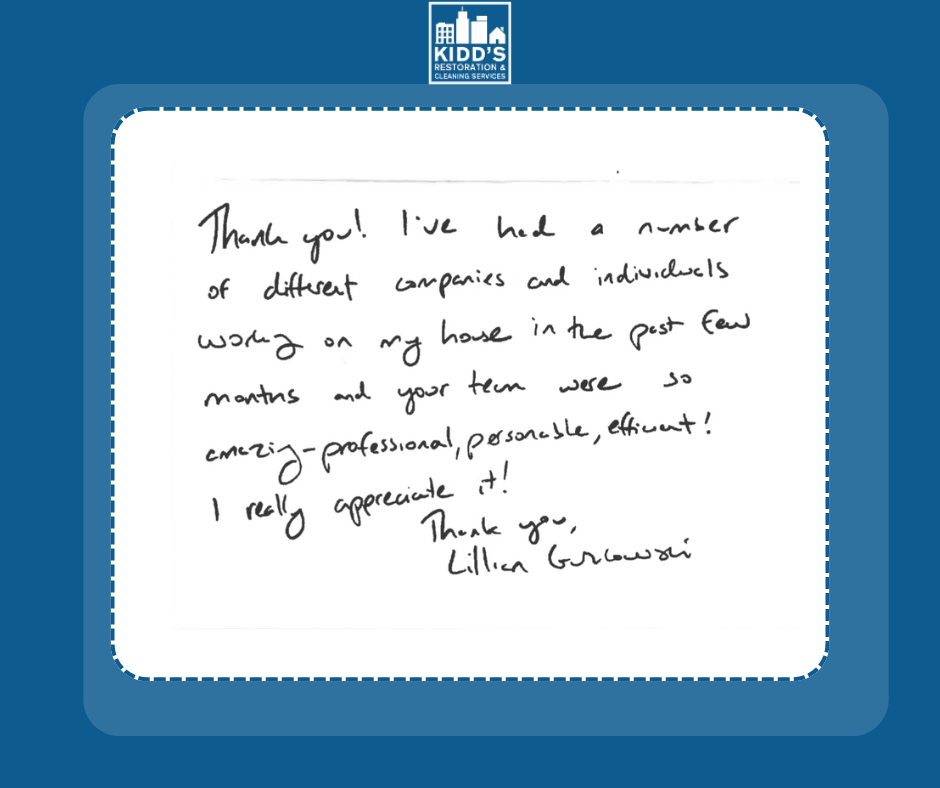 KIDD'S
RESTORATION &
CLEANING SERVICES
Thank you! I've had a number
of different companies and individuals
working on my house in the past few
months and your team were so
amazing-professional, personable, efficient!
I really appreciate it!
Thank you,
Lillian